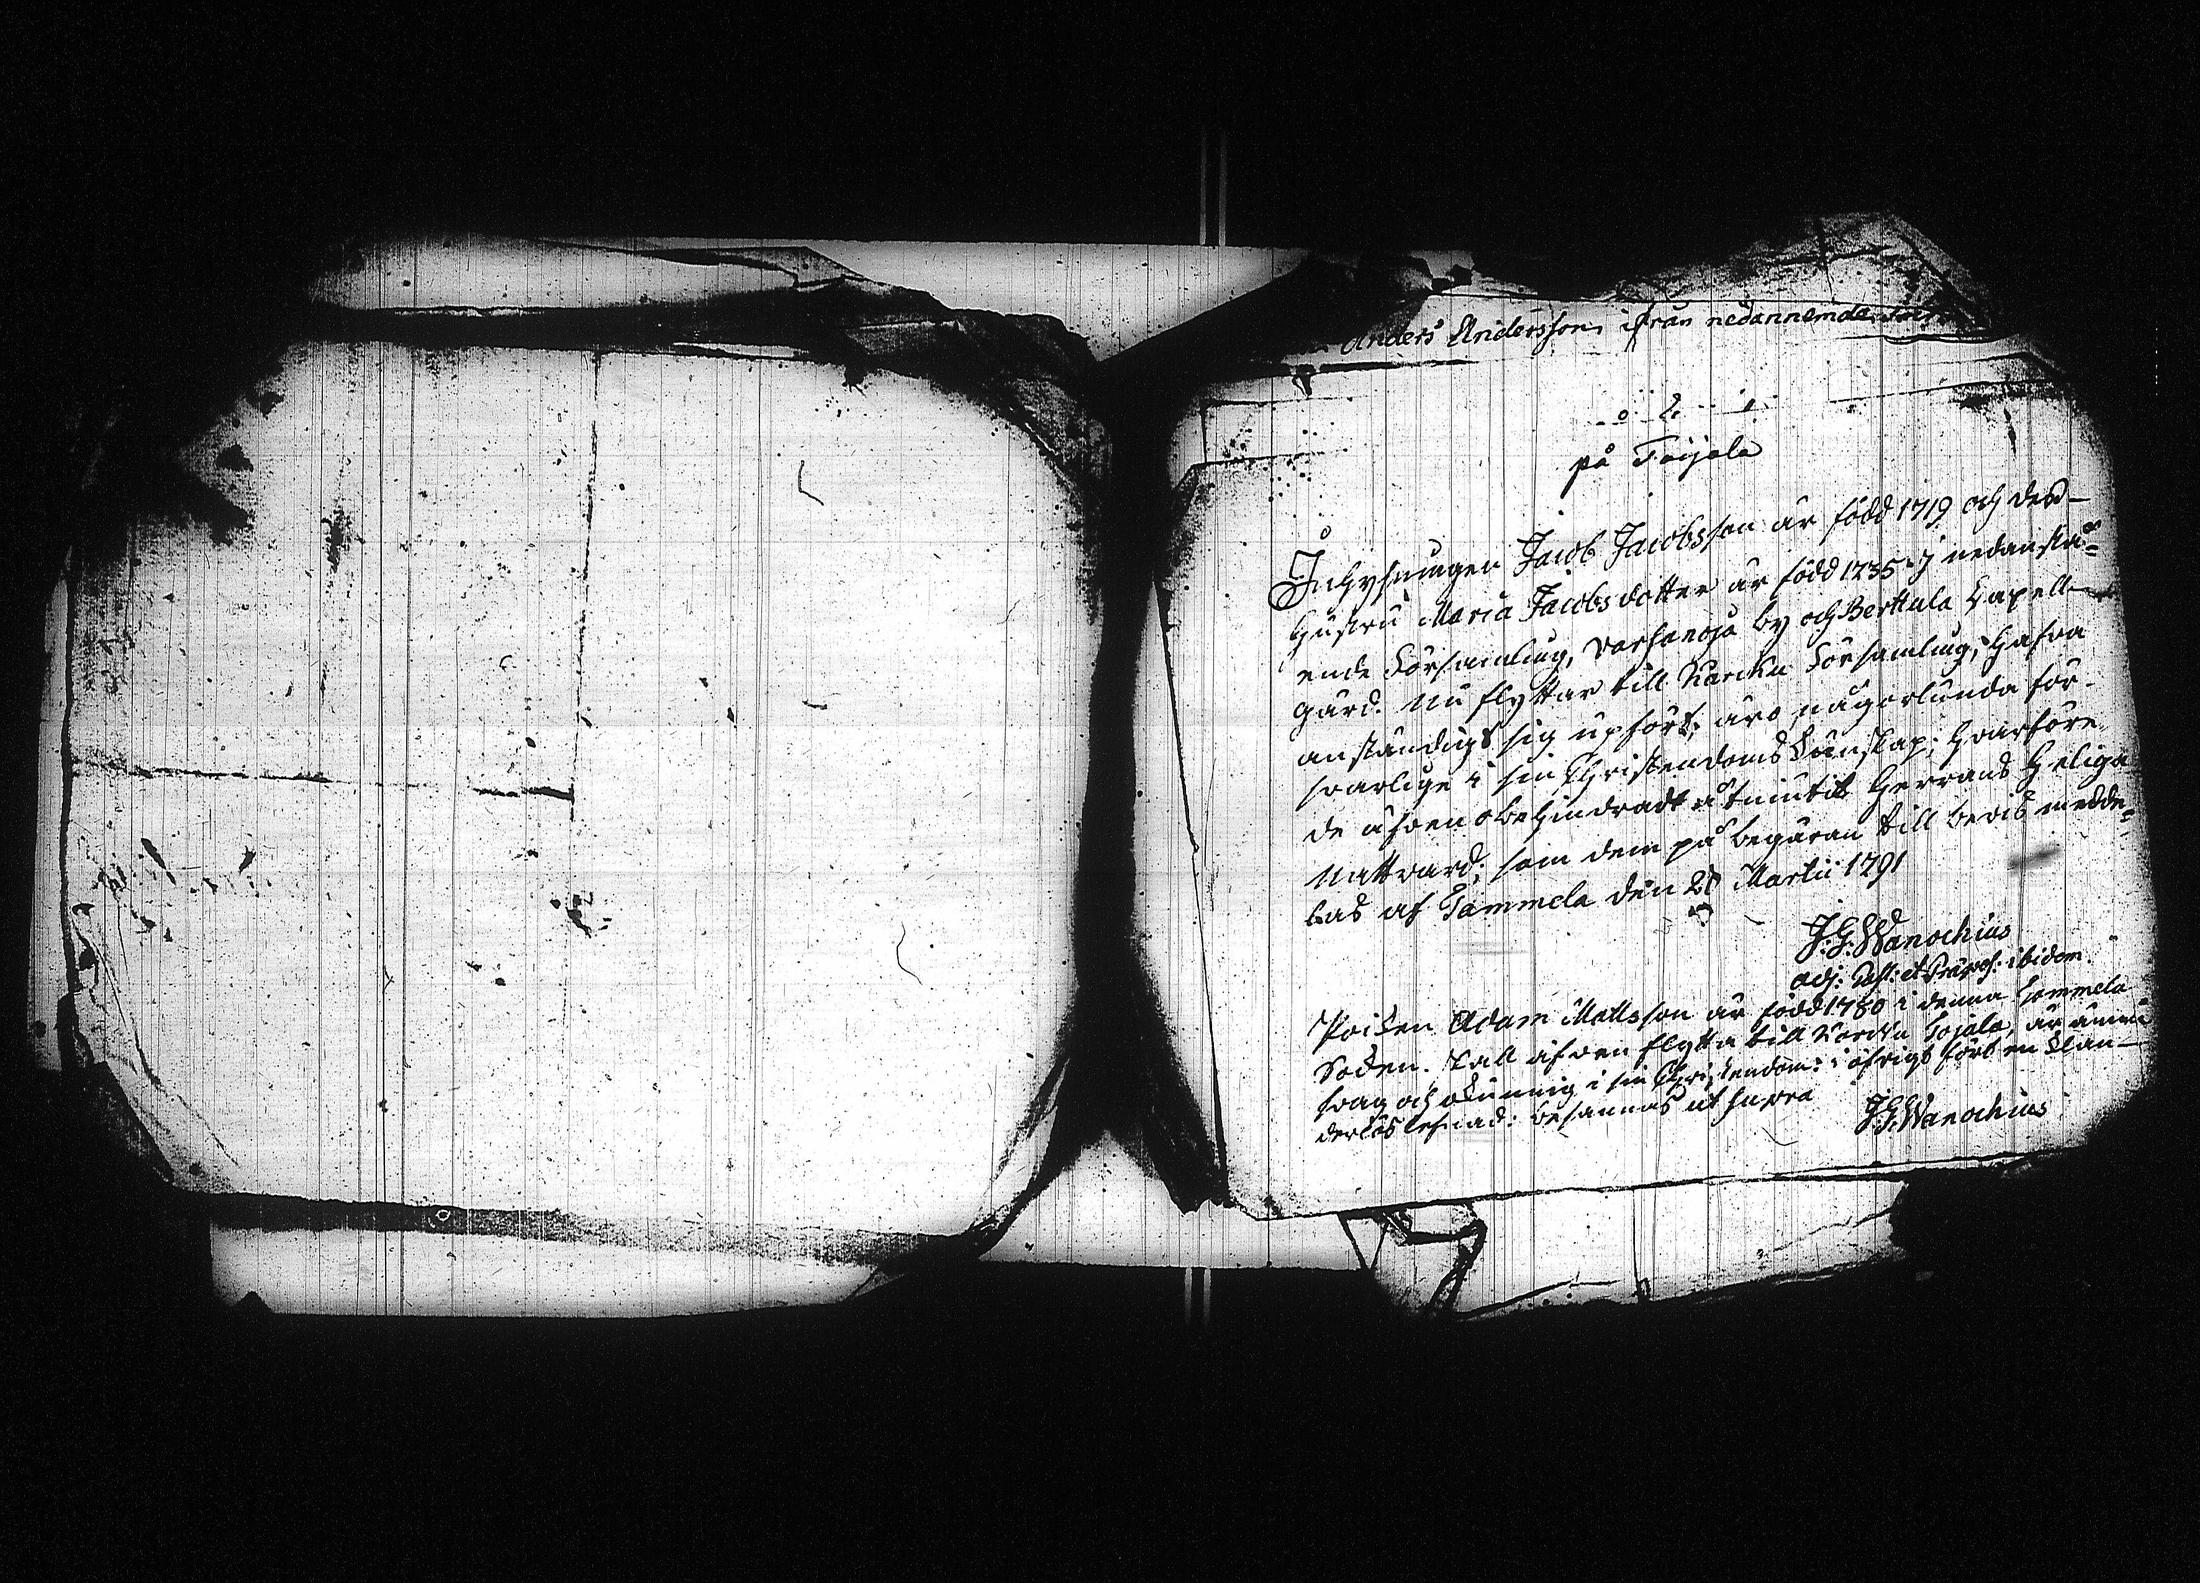 Anders Andersson ifrån nedannemde
på Toijala
Inhysningen Jacob Jacobsson är född 1719 och dess
hustru Maria Jacobsdotter är född 1735 i nedanstå=
ende Församling, Varsanoja by och Berttula Capell-
gård. Nu flyttar till Karcku Församling; hafva
anständigt sig upfört; äro någorlunda för-
svarlige i sin Christendoms Kunskap; hvarföre
de äfven obehindradt åtniutit Herrans Heliga
Nattvard; som dem på begäran till bevis medde=
las af Tammela den 20 Martii 1791
J.G. Wanochius
adj: Past: et Præpos: ibidem.
Poiken Adam Mattsson är född 1780 i denna Tammela
Soken. Skall äfven flytta till Karcku Tojala, är ännu
svag och okunnig i sin Christendom: i öfrigt fört en klan-
derlös lefnad: besannas ut supra
J.G. Wanochius